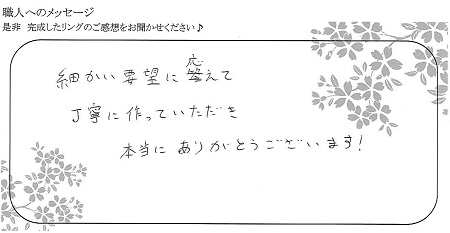 職人へのメッセージ
是非 完成したリングのご感想をお聞かせください♪
細かい要望に応えて
丁寧に作っていただき
本当にありがとうございます!